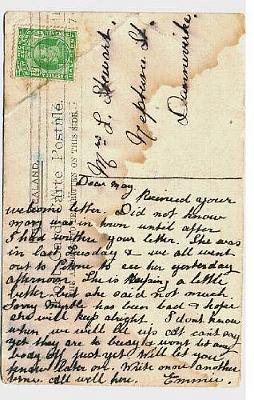 Mrs L. Stewart.
Neptune St
Dannevirke
Carte Postale
ON THIS SIDE
EALAND.
Dear May.
Received your
welcome letter. Did not know
mary was in town until after
I had written your letter. She was
in last Tuesday & we all went
out to Petone to see her yesterday
afternoon. She is a little
better but she said not much
Sorry has been bad & hope
she will keep alright I don't know
when we will be up all can't say
yet they are to busy & wont let any
body off just yet will let you
know later on. Write once another
time all well here. Emmie.